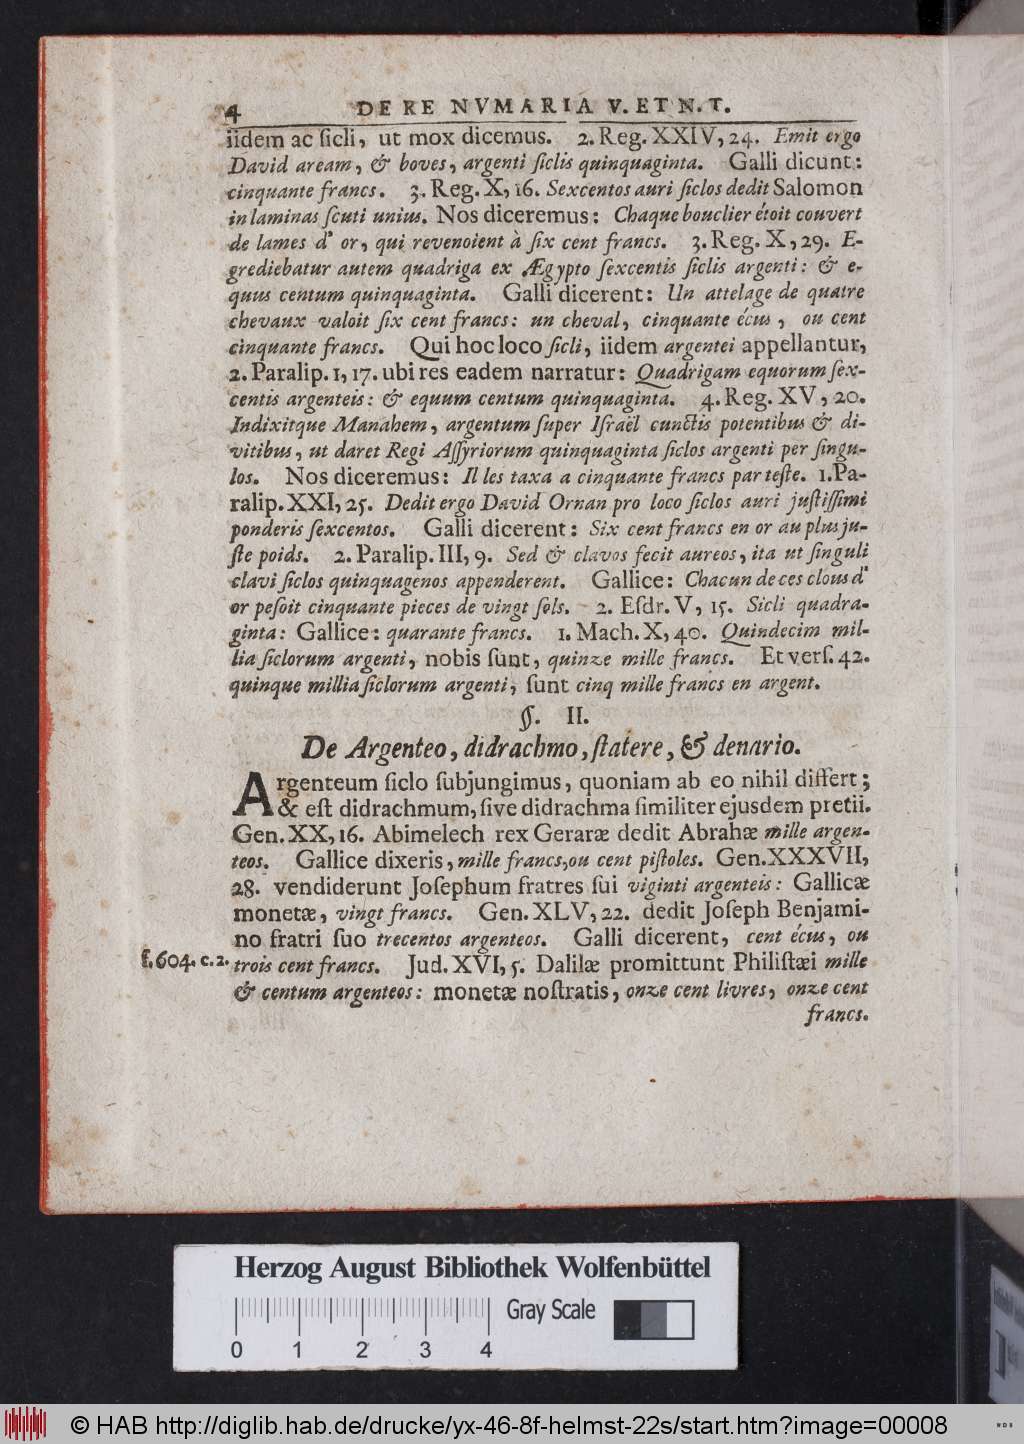 4 DE RE NVMARIA V. ET N. T.
iidem ac ſicli, ut mox dicemus. 2. Reg. XXIV, 24. Emit ergo
David aream, & boves, argenti ſiclis quinquaginta. Galli dicunt:
cinquante francs. 3. Reg. X, 16. Sexcentos auri ſiclos dedit Salomon
in laminas ſcuti unius. Nos diceremus: Chaque bouclier étoit couvert
de lames d' or, qui revenoient à ſix cent francs. 3. Reg. X, 29. E-
grediebatur autem quadriga ex Ægypto ſexcentis ſiclis argenti: & e-
quus centum quinquaginta. Galli dicerent: Un attelage de quatre
chevaux valoit ſix cent francs: un cheval, cinquante écus, ou cent
cinquante francs. Qui hoc loco ſicli, iidem argentei appellantur,
2. Paralip. 1, 17. ubi res eadem narratur: Quadrigam equorum ſex-
centis argenteis: & equum centum quinquaginta. 4. Reg. XV, 20.
Indixitque Manahem, argentum ſuper Iſraël cunctis potentibus & di-
vitibus, ut daret Regi Aſſyriorum quinquaginta ſiclos argenti per ſingu-
los. Nos diceremus: Il les taxa a cinquante francs par teſte. 1. Pa-
ralip. XXI, 25. Dedit ergo David Ornan pro loco ſiclos auri juſtiſſimi
ponderis ſexcentos. Galli dicerent: Six cent francs en or au plus ju-
ſte poids. 2. Paralip. III, 9. Sed & clavos fecit aureos, ita ut ſinguli
clavi ſiclos quinquagenos appenderent. Gallice: Chacun de ces clous d'
or peſoit cinquante pieces de vingt ſols. 2. Eſdr. V, 15. Sicli quadra-
ginta: Gallice: quarante francs. 1. Mach. X, 40. Quindecim mil-
lia ſiclorum argenti, nobis ſunt, quinze mille francs. Et verſ. 42.
quinque millia ſiclorum argenti, ſunt cinq mille francs en argent.
§. II.
De Argenteo, didrachmo, ſtatere, & denario.
Argenteum ſiclo ſubjungimus, quoniam ab eo nihil differt;
& eſt didrachmum, ſive didrachma ſimiliter ejusdem pretii.
Gen. XX, 16. Abimelech rex Geraræ dedit Abrahæ mille argen-
teos. Gallice dixeris, mille francs, ou cent piſtoles. Gen. XXXVII,
28. vendiderunt Joſephum fratres ſui viginti argenteis: Gallicæ
monetæ, vingt francs. Gen. XLV, 22. dedit Joſeph Benjami-
no fratri ſuo trecentos argenteos. Galli dicerent, cent écus, ou
f. 604. c. 2. trois cent francs. Jud. XVI, 5. Dalilæ promittunt Philiſtæi mille
& centum argenteos: monetæ noſtratis, onze cent livres, onze cent
francs.
Herzog August Bibliothek Wolfenbüttel
Gray Scale
0 1 2 3 4
© HAB http://diglib.hab.de/drucke/yx-46-8f-helmst-22s/start.htm?image=00008